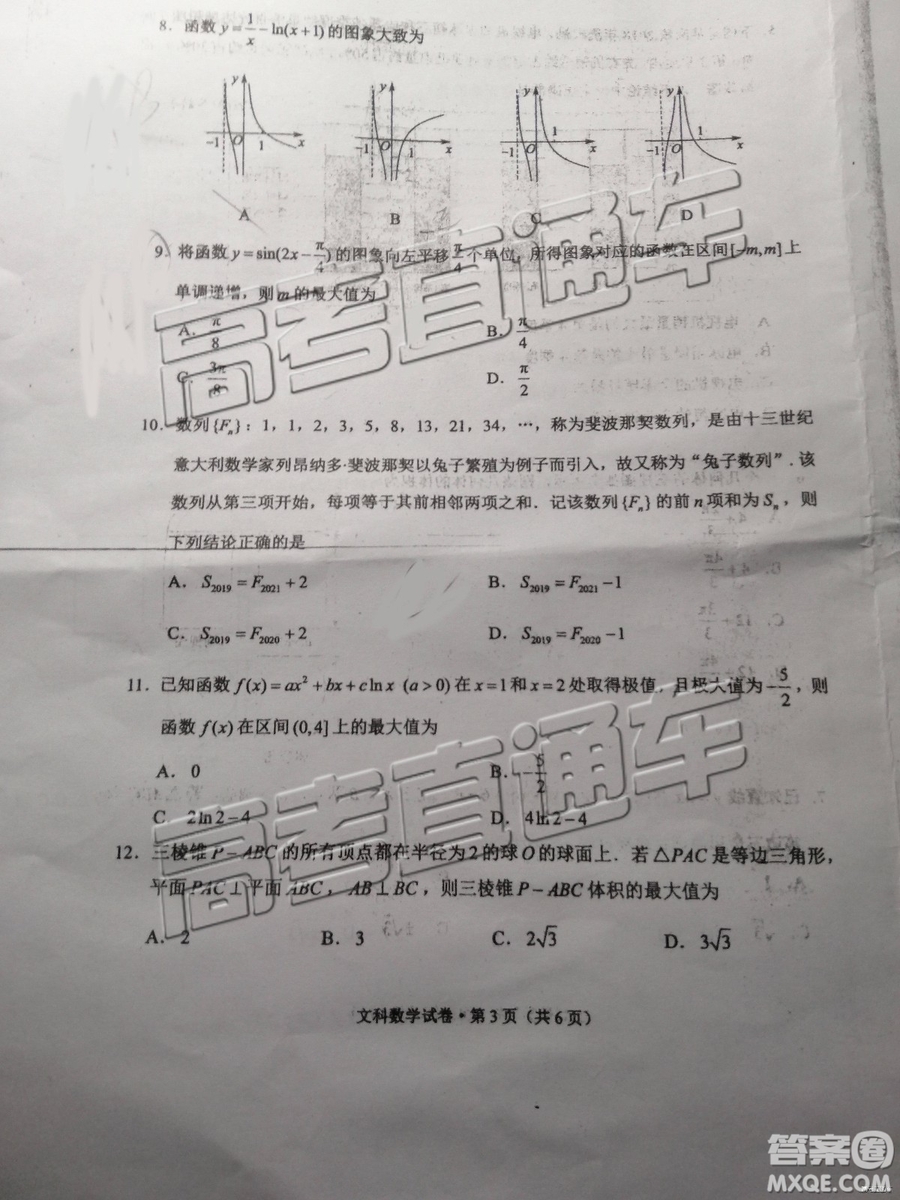 8. 函数 y=1/x-ln(x+1) 的图象大致为
y y y y
-1 O 1 x -1 O 1 x -1 O 1 x -1 O 1 x
A B C D
9. 将函数 y=sin(2x-π/4) 的图象向左平移 π/4 个单位,所得图象对应的函数在区间[-m,m]上
单调递增,则 m 的最大值为
A. π/8 B. π/4
C. 3π/8 D. π/2
10. 数列{Fₙ}:1,1,2,3,5,8,13,21,34,…,称为斐波那契数列,是由十三世纪
意大利数学家列昂纳多·斐波那契以兔子繁殖为例子而引入,故又称为“兔子数列”.该
数列从第三项开始,每项等于其前相邻两项之和.记该数列{Fₙ}的前 n 项和为 Sₙ,则
下列结论正确的是
A. S₂₀₁₉=F₂₀₂₁+2 B. S₂₀₁₉=F₂₀₂₁-1
C. S₂₀₁₉=F₂₀₂₀+2 D. S₂₀₁₉=F₂₀₂₀-1
11. 已知函数 f(x)=ax²+bx+clnx (a>0) 在 x=1 和 x=2 处取得极值,且极大值为-5/2,则
函数 f(x) 在区间(0,4]上的最大值为
A. 0 B. -5/2
C. 2ln2-4 D. 4ln2-4
12. 三棱锥 P-ABC 的所有顶点都在半径为2的球 O 的球面上.若△PAC 是等边三角形,
平面 PAC⊥平面 ABC,AB⊥BC,则三棱锥 P-ABC 体积的最大值为
A. 2 B. 3 C. 2√3 D. 3√3
文科数学试卷·第3页(共6页)
高考直通车
高考直通车
答案圈
MXQE.COM